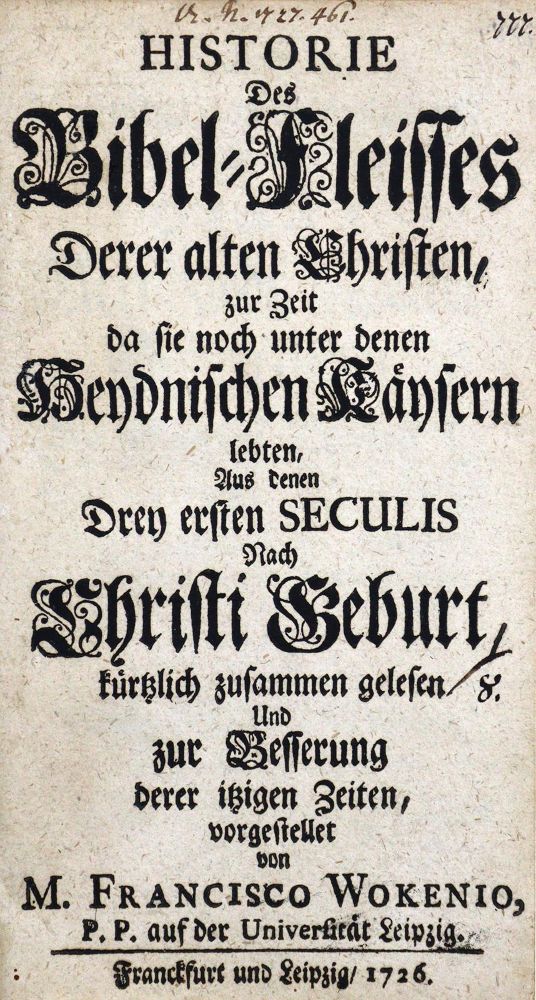 HISTORIE
Des
Bibel-Fleisses
Derer alten Christen,
zur Zeit
da sie noch unter denen
Heydnischen Käysern
lebten,
Aus denen
Drey ersten SECULIS
Nach
Christi Geburt
kürtzlich zusammen gelesen /
Und
zur Besserung
derer itzigen Zeiten,
vorgestellet
von
M. FRANCISCO WOKENIO,
P. P. auf der Universität Leipzig.
Franckfurt und Leipzig / 1726.